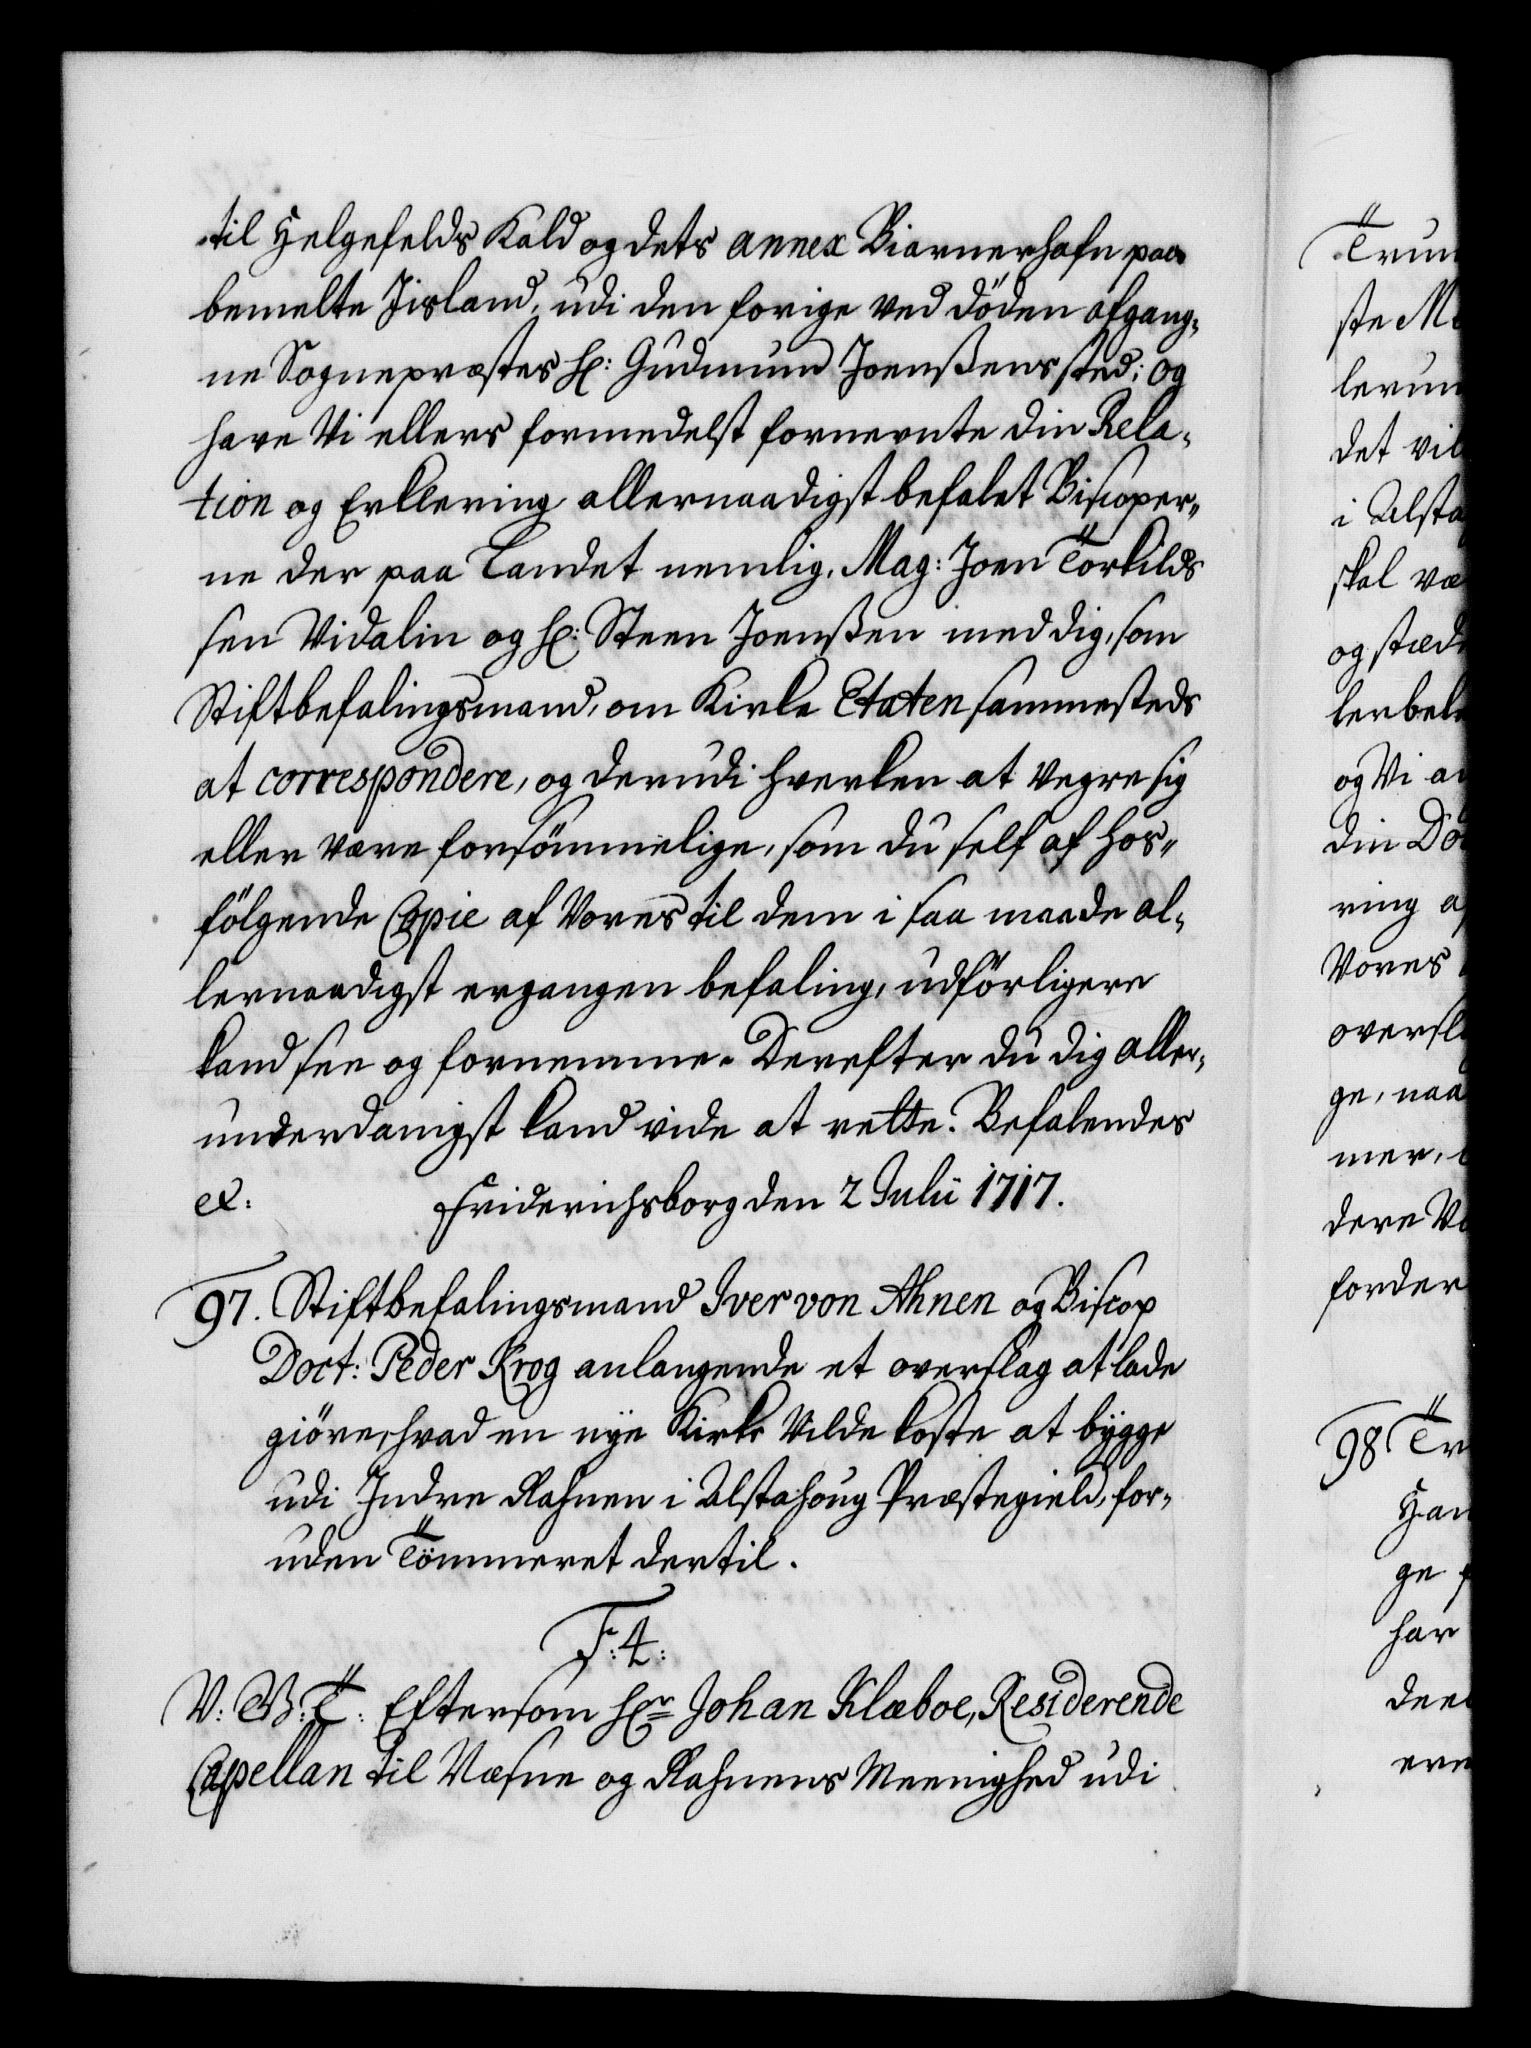 til Helgefelds Kald og dets annex Biarnerhafn paa
bemelte Jisland, udi den forige ved döden afgang-
ne Sognepræstes Hr: Gudmund Joenßens sted; og
have Vi ellers formedelst fornevnte din Rela-
tion og Erklering allernaadigst befalet Biscoper-
ne der paa Landet nemlig, Mag: Joen Torkilds
sen Vidalin og Hr: Steen Joenßen med dig, som
Stiftbefalingsmand, om Kirke Etaten sammesteds
at correspondere, og derudi hverken at vegre sig
eller være forsömmelige, som du self af hos-
fölgende Copie af Vores til dem i saa maade al-
lernaadigst ergangen befaling, udförligere
kand see og fornemme. Derefter du dig aller-
underdanigst kand vide at rette. Befalendes
ex: Friderichsborg den 2 Julii 1717.
97. Stiftbefalingsmand Iver von Ahnen og Biscop
Doct: Peder Krog anlangende et overslag at lade
giöre, hvad en nye Kirke Vilde koste at bygge
udi Indre Rahnen i Alstahoug Præstegield, for-
uden Tömmeret dertil.
F: 4:
V: G: T: Eftersom Hr Johan Klæboe, Residerende
Capellan til Væfsne og Rahnens Meenighed udi
Trun
ste M
lerun
det vil
i Alsta
skal væ
og stæd
ler bek
og Vi a
din Do
ring a
Vores
oversl
ge, naa
mer,
dere V
forder
98 Tr
Han
ge
har
dee
ere